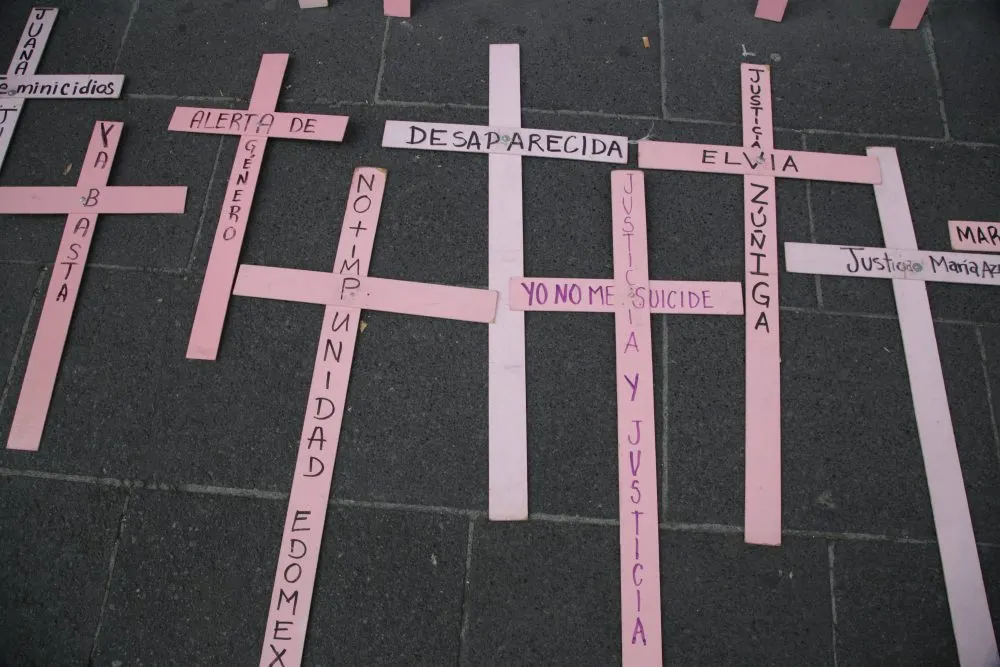 JUANA
eminicidios
YA BASTA
ALERTA DE
GÉNERO
NO + IMPUNIDAD EDOMEX
DESAPARECIDA
YO NO ME SUICIDE
JUSTICIA Y JUSTICIA
JUSTICIA
ELVIA
ZÚÑIGA
Justicia María
MAR